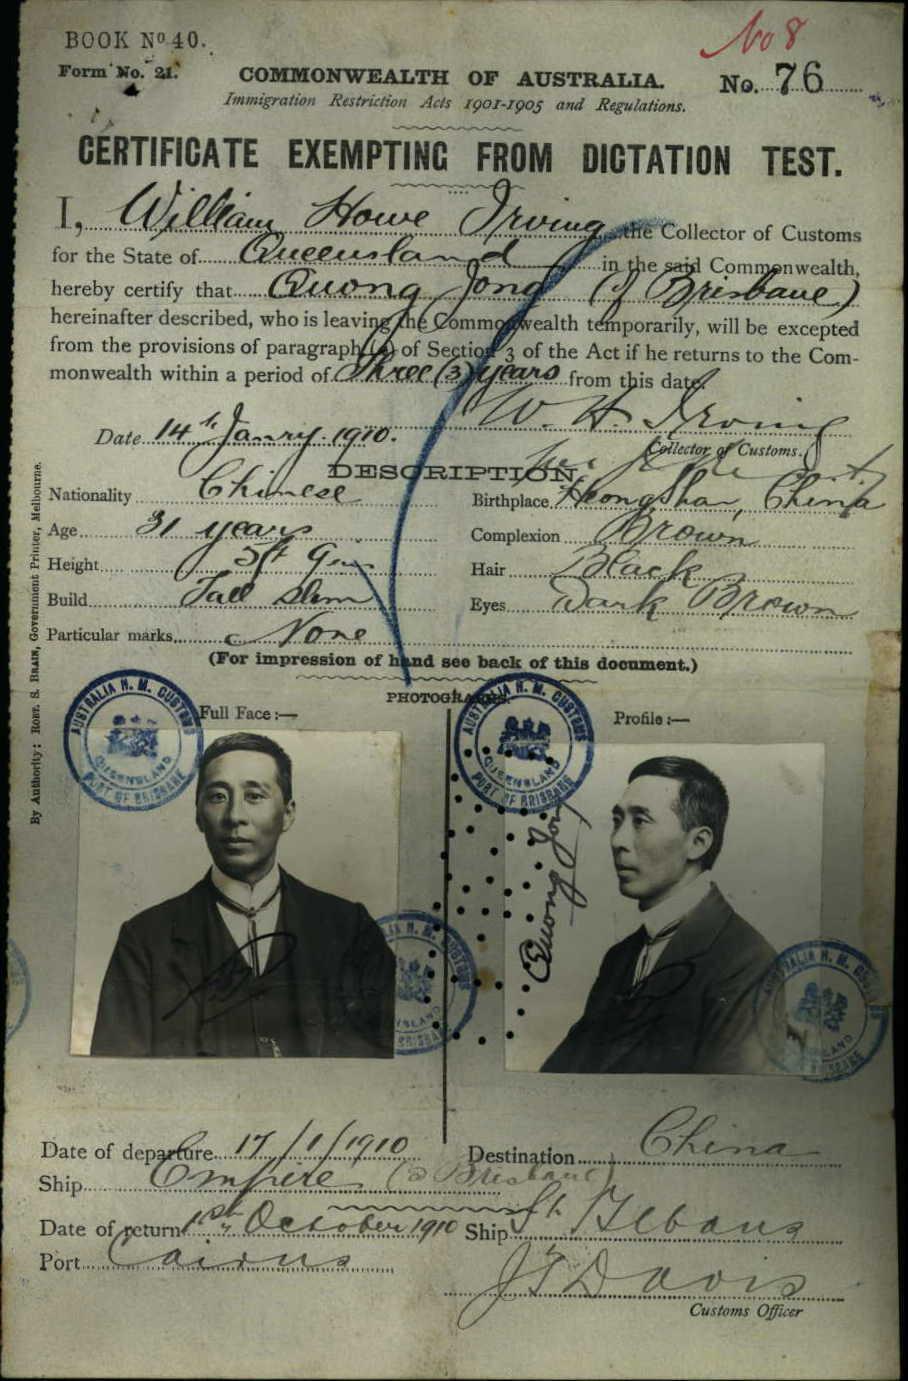 BOOK No 40.
No 8
Form No. 21.
COMMONWEALTH OF AUSTRALIA.
No. 76
Immigration Restriction Acts 1901-1905 and Regulations.
CERTIFICATE EXEMPTING FROM DICTATION TEST.
I, William Howe Irving the Collector of Customs
for the State of Queensland in the said Commonwealth,
hereby certify that Quong Jong (of Brisbane)
hereinafter described, who is leaving the Commonwealth temporarily, will be excepted
from the provisions of paragraph (a) of Section 3 of the Act if he returns to the Com-
monwealth within a period of Three (3) years from this date.
W. H. Irving
Date 14th Janry. 1910.
Collector of Customs.
DESCRIPTION.
Nationality Chinese
Birthplace Heong Shan, China
Age 31 years
Complexion Brown
Height 5ft 9in
Hair Black
Build Tall Slim
Eyes Dark Brown
Particular marks None
(For impression of hand see back of this document.)
PHOTOGRAPHS.
Full Face :—
Profile :—
AUSTRALIA H. M. CUSTOMS
QUEENSLAND
PORT OF BRISBANE
AUSTRALIA H. M. CUSTOMS
QUEENSLAND
PORT OF BRISBANE
Quong Jong
Date of departure 17/1/1910
Destination China
Ship Empire (Brisbane)
Date of return 1st October 1910
Ship St Albans
Port Cairns
J T Davis
Customs Officer
By Authority: ROBT. S. BRAIN, Government Printer, Melbourne.